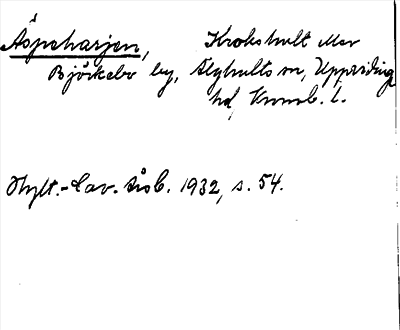 Äspeharjen, Krokshult Mor
Björkebo by, Älghults sn, Uppvidinge
hd, Kronob. l.
Hylt.-Cav. årsb. 1932, s. 54.